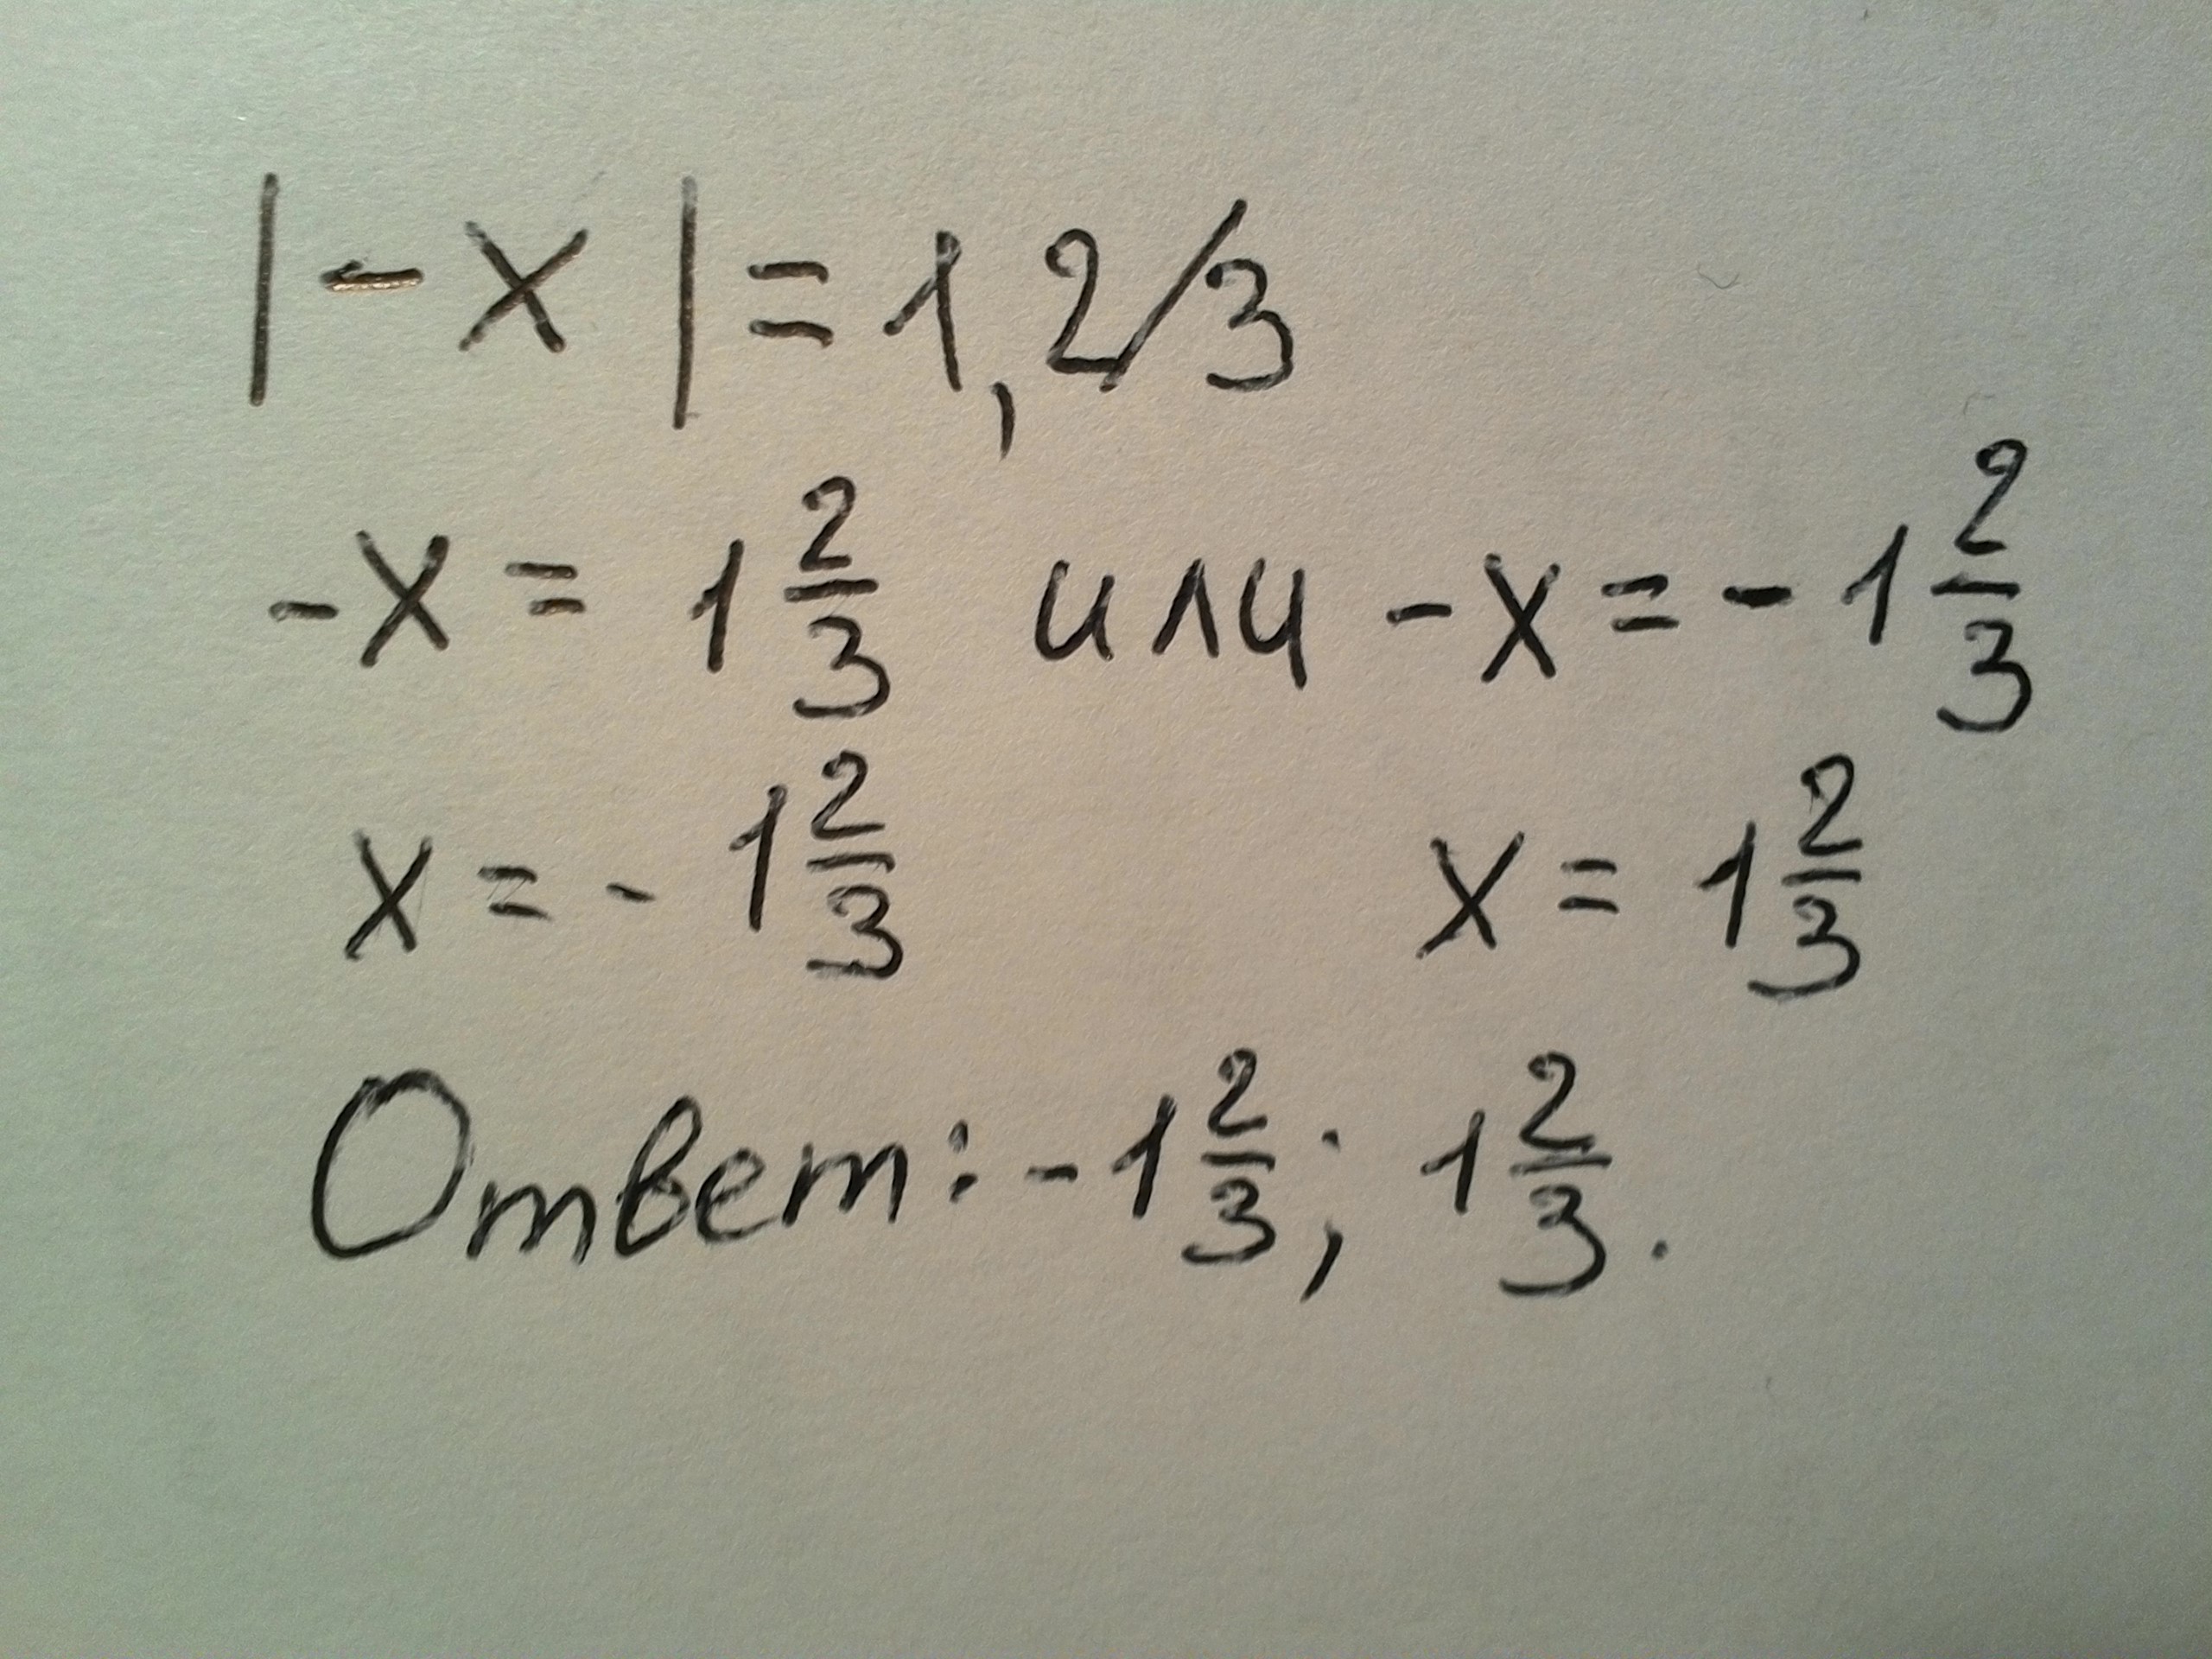 |-x|=1,2/3
-x = 1 2/3 или -x = -1 2/3
x = -1 2/3 x = 1 2/3
Ответ: -1 2/3; 1 2/3.